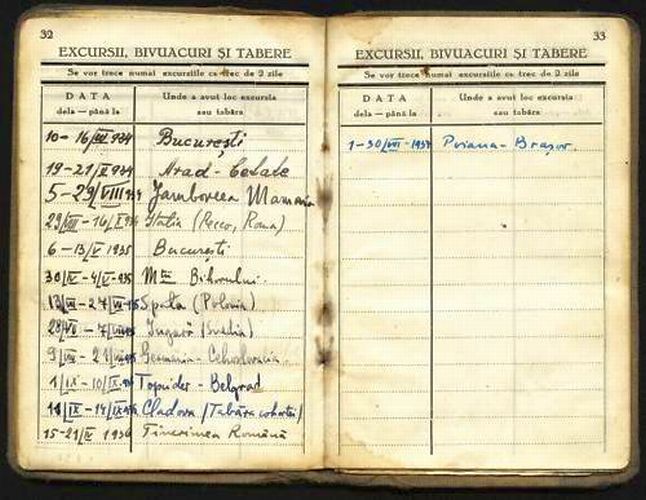 32
EXCURSII, BIVUACURI ȘI TABERE
Se vor trece numai excursiile ce trec de 2 zile
DATA
dela — până la
Unde a avut loc excursia
sau tabăra
10 – 16/III 934 București
19 – 21/ 934 Arad - Cetate
5 – 29/VIII Jamboreea Mamaia
29/VIII – 16/X Italia (Recco, Roma)
6 – 13/V 1935 București
30/IV – 4/V - 935 M-ții Bihorului.
13/VII – 27/VII Spała (Polonia)
28/VII – 7/ Ingarö (Suedia)
9/VIII – 21/ Germania - Cehoslovacia.
1/IX – 10/IX Topcider - Belgrad
11/IX – 14/IX Cladova (Tabăra cohortei)
15-21/IV 1936 Tinerimea Română
33
EXCURSII, BIVUACURI ȘI TABERE
Se vor trece numai excursiile ce trec de 2 zile
DATA
dela — până la
Unde a avut loc excursia
sau tabăra
1 – 30/VII - 193 Poiana - Brașov.